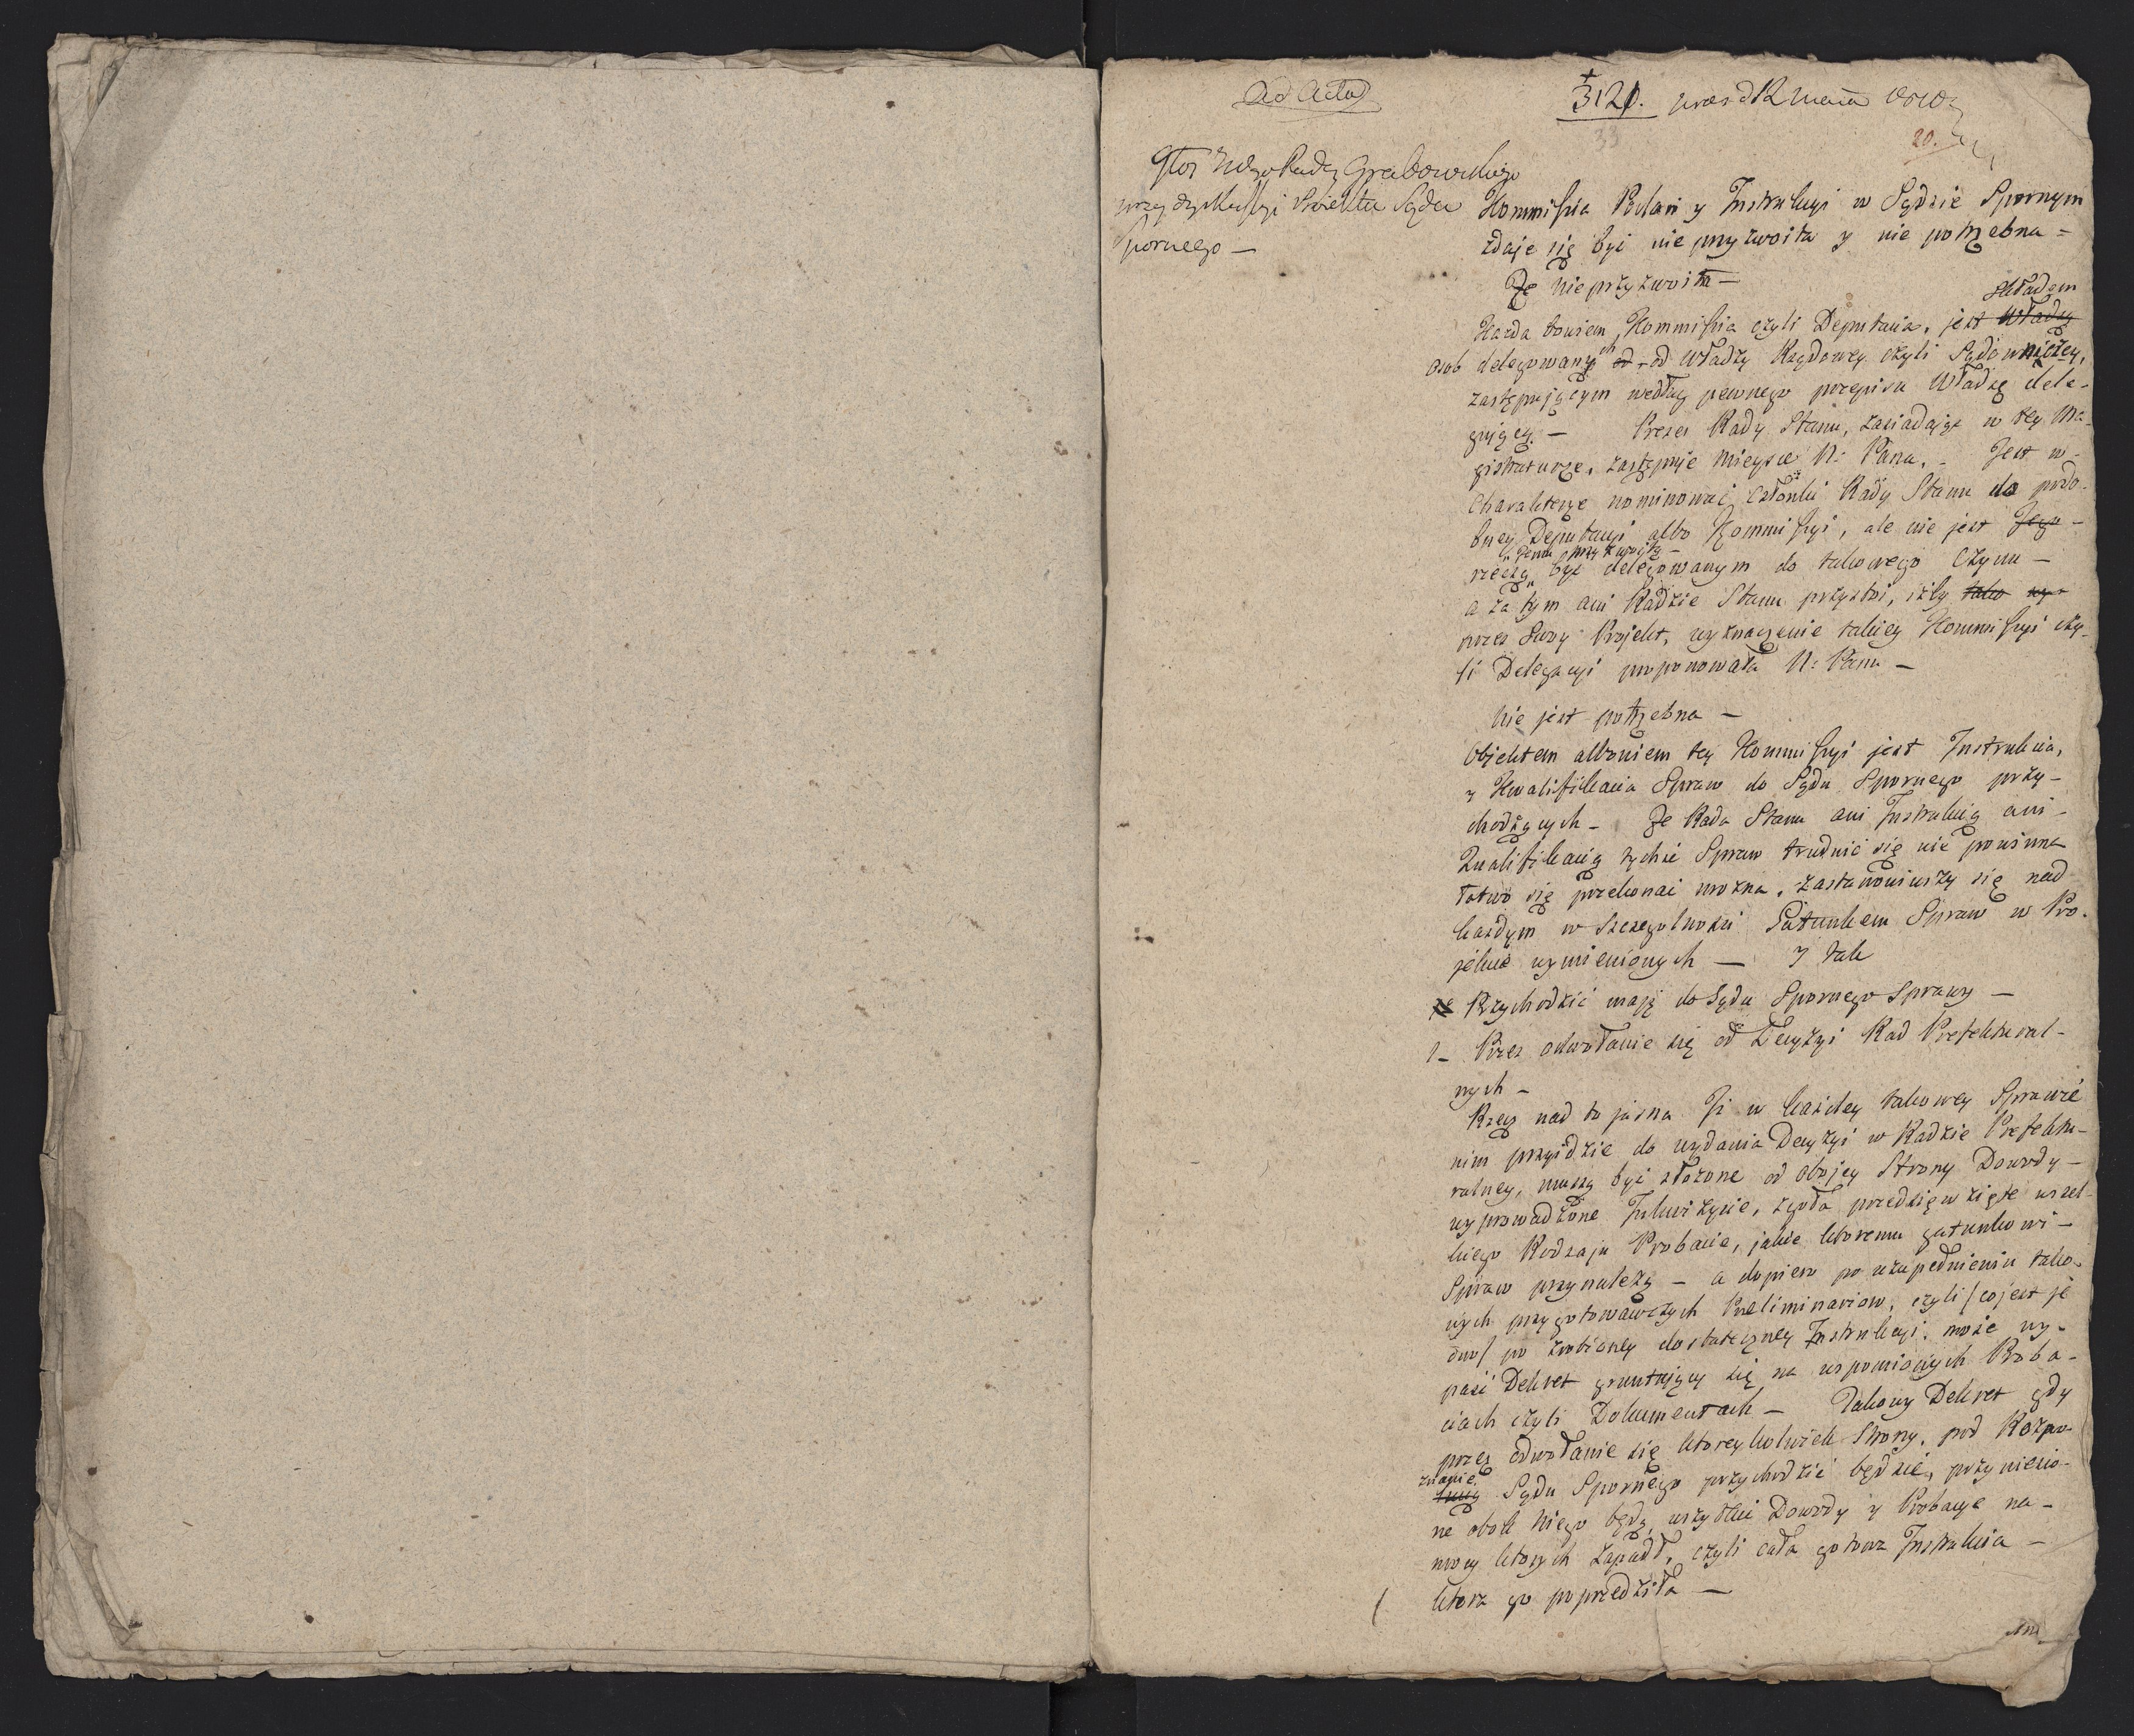 Ad Acta
3121.
33
20.
Głos Grabowskiego
przy dyskussyi Proiektu Sądu
Spornego —
Kommissia Podań y Instrukcyi w Sądzie Spornym
zdaje się być nie przyzwoita y nie potrzebna =
Że nieprzyzwoita —
składem
Każda bowiem Kommissia czyli Deputacia, jest Władzą
osob delegowanych od od Władzy Rządowey czyli Sądowniczey,
zastępującym według pewnego przepisu Władzę dele-
guiącą. — Prezes Rady Stanu, zasiadając w tey Ma-
gistraturze, zastępuje mieysce N: Pana. – Jest w
Charakterze nominować Członki Rady Stanu do podo-
bney Deputacyi albo Kommissyi, ale nie jest Jego –
Jemu przyzwoitą –
rzeczą być delegowanym do takowego Czynu —
a za tym ani Radzie Stanu przystoi, iżby tako wy-
przez Swoy Projekt, wyznaczenie takiey Kommissyi czy-
li Delegacyi proponowała N: Panu —
Nie jest potrzebna —
Objektem albowiem tey Kommissyi jest Instrukcia,
y Kwalifikacia Spraw do Sądu Spornego przy-
chodzących – Że Rada Stanu ani Instrukcią ani
Kwalifikacią tychże Spraw trudnić się nie powinna
łatwo się przekonać można, zastanowiwszy się nad
każdym w Szczególności Gatunkiem Spraw w Pro-
jekcie wymienionych — I tak
Przychodzić mają do Sądu Spornego Sprawy —
1– Przez odwołanie się od Decyzyi Rad Prefektural-
nych –
Rzecz nad to jasna Iż w każdey takowey Sprawie
nim przyidzie do wydania Decyzyi w Radzie Prefektu-
ralney, muszą być złożone od obojey Strony Dowody –
wyprowadzone Inkwizycie, zgoła przedsięwzięte wszel-
kiego Rodzaju Probacie, jakie ktoremu gatunkowi –
Spraw przynależą – a dopiero po uzupełnieniu tako-
wych przygotowawczych Preliminariow, czyli /co jest je
dno/ po zrobioney dostateczney Instrukcyi, może wy-
paść Dekret gruntujący się na wspomnionych Proba-
ciach czyli Dokumentach – Takowy Dekret gdy
przez odwołanie się ktoreykolwiek Strony, pod Rozpo-
znanie
Sądu Spornego przychodzić będzie, przyniesio-
ne obok Niego będą wszystkie Dowody y Probacye na –
mocy ktorych zapadł, czyli cała gotowa Instrukcia –
ktora go poprzedziła —
Ani